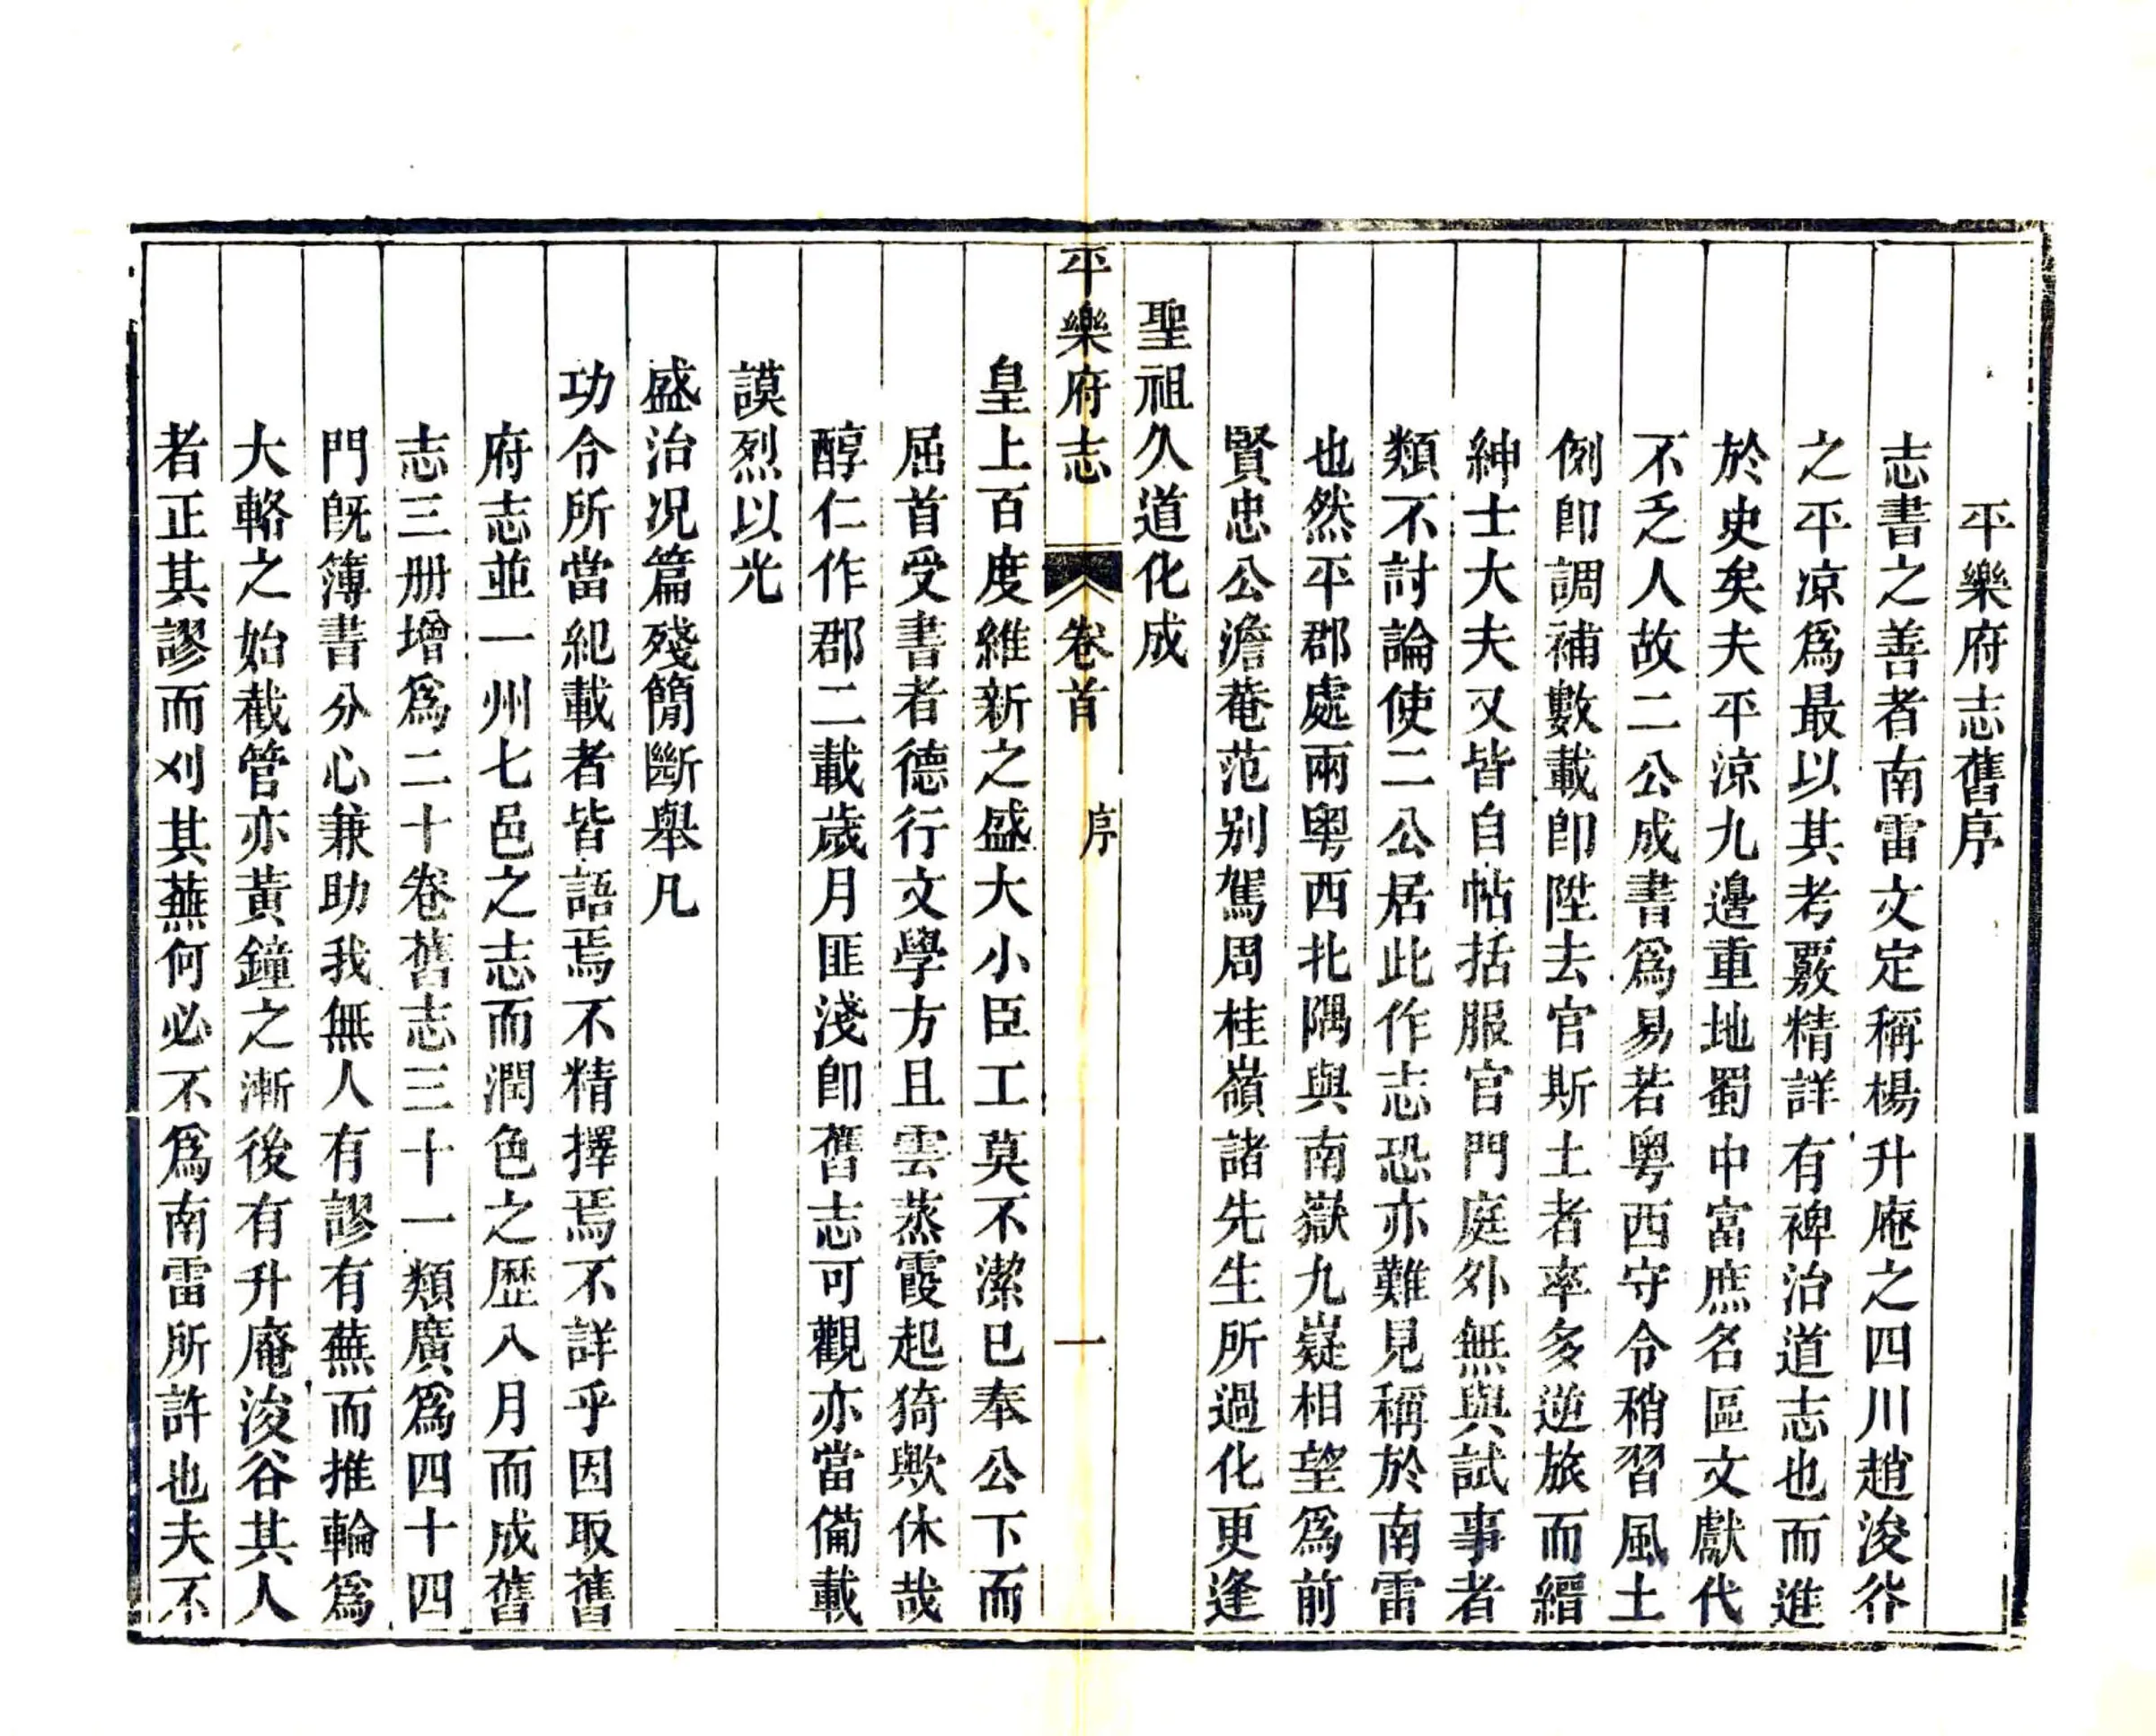 平樂府志舊序
志書之善者南雷文定稱楊升庵之四川趙浚谷
之平凉爲最以其考覈精詳有裨治道志也而進
於史矣夫平涼九邊重地蜀中富庶名區文獻代
不乏人故二公成書爲易若粤西守令稍習風土
例卽調補數載卽陞去官斯土者率多逆旅而縉
紳士大夫又皆自帖括服官門庭外無與試事者
類不討論使二公居此作志恐亦難見稱於南雷
也然平郡處兩粤西北隅與南嶽九嶷相望爲前
賢忠公澹菴范别駕周桂嶺諸先生所過化更逢
聖祖久道化成
平樂府志 卷首 序 一
皇上百度維新之盛大小臣工莫不潔已奉公下而
屈首受書者德行文學方且雲蒸霞起猗歟休哉
醇仁作郡二載歲月匪淺卽舊志可觀亦當備載
謨烈以光
盛治况篇殘簡斷舉凡
功令所當紀載者皆語焉不精擇焉不詳乎因取舊
府志並一州七邑之志而潤色之歷八月而成舊
志三册增爲二十卷舊志三十一類廣爲四十四
門旣簿書分心兼助我無人有謬有蕪而推輪爲
大輅之始截管亦黃鐘之漸後有升庵浚谷其人
者正其謬而刈其蕪何必不爲南雷所許也夫不